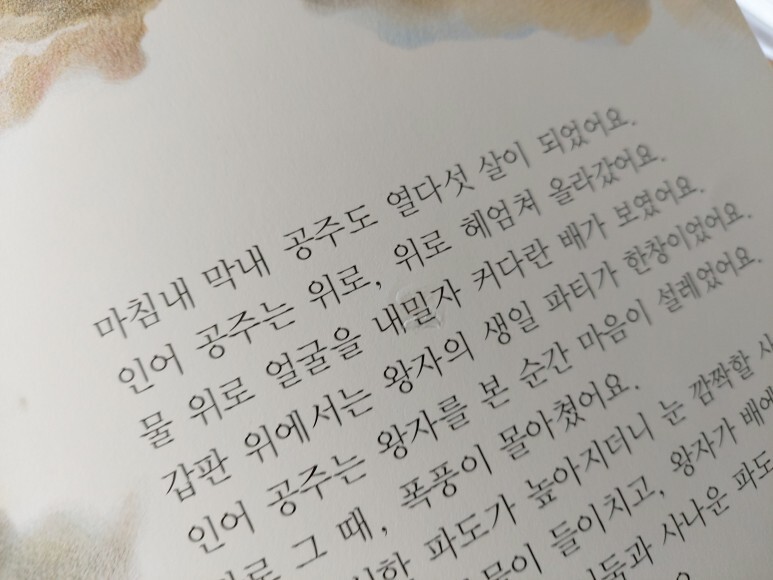 마침내 막내 공주도 열다섯 살이 되었어요.
인어 공주는 위로, 위로 헤엄쳐 올라갔어요.
물 위로 얼굴을 내밀자 커다란 배가 보였어요.
갑판 위에서는 왕자의 생일 파티가 한창이었어요.
인어 공주는 왕자를 본 순간 마음이 설레었어요.
그 때, 폭풍이 몰아쳤어요.
파도가 높아지더니 눈 깜짝할
들이치고, 왕자가 배에
사나운